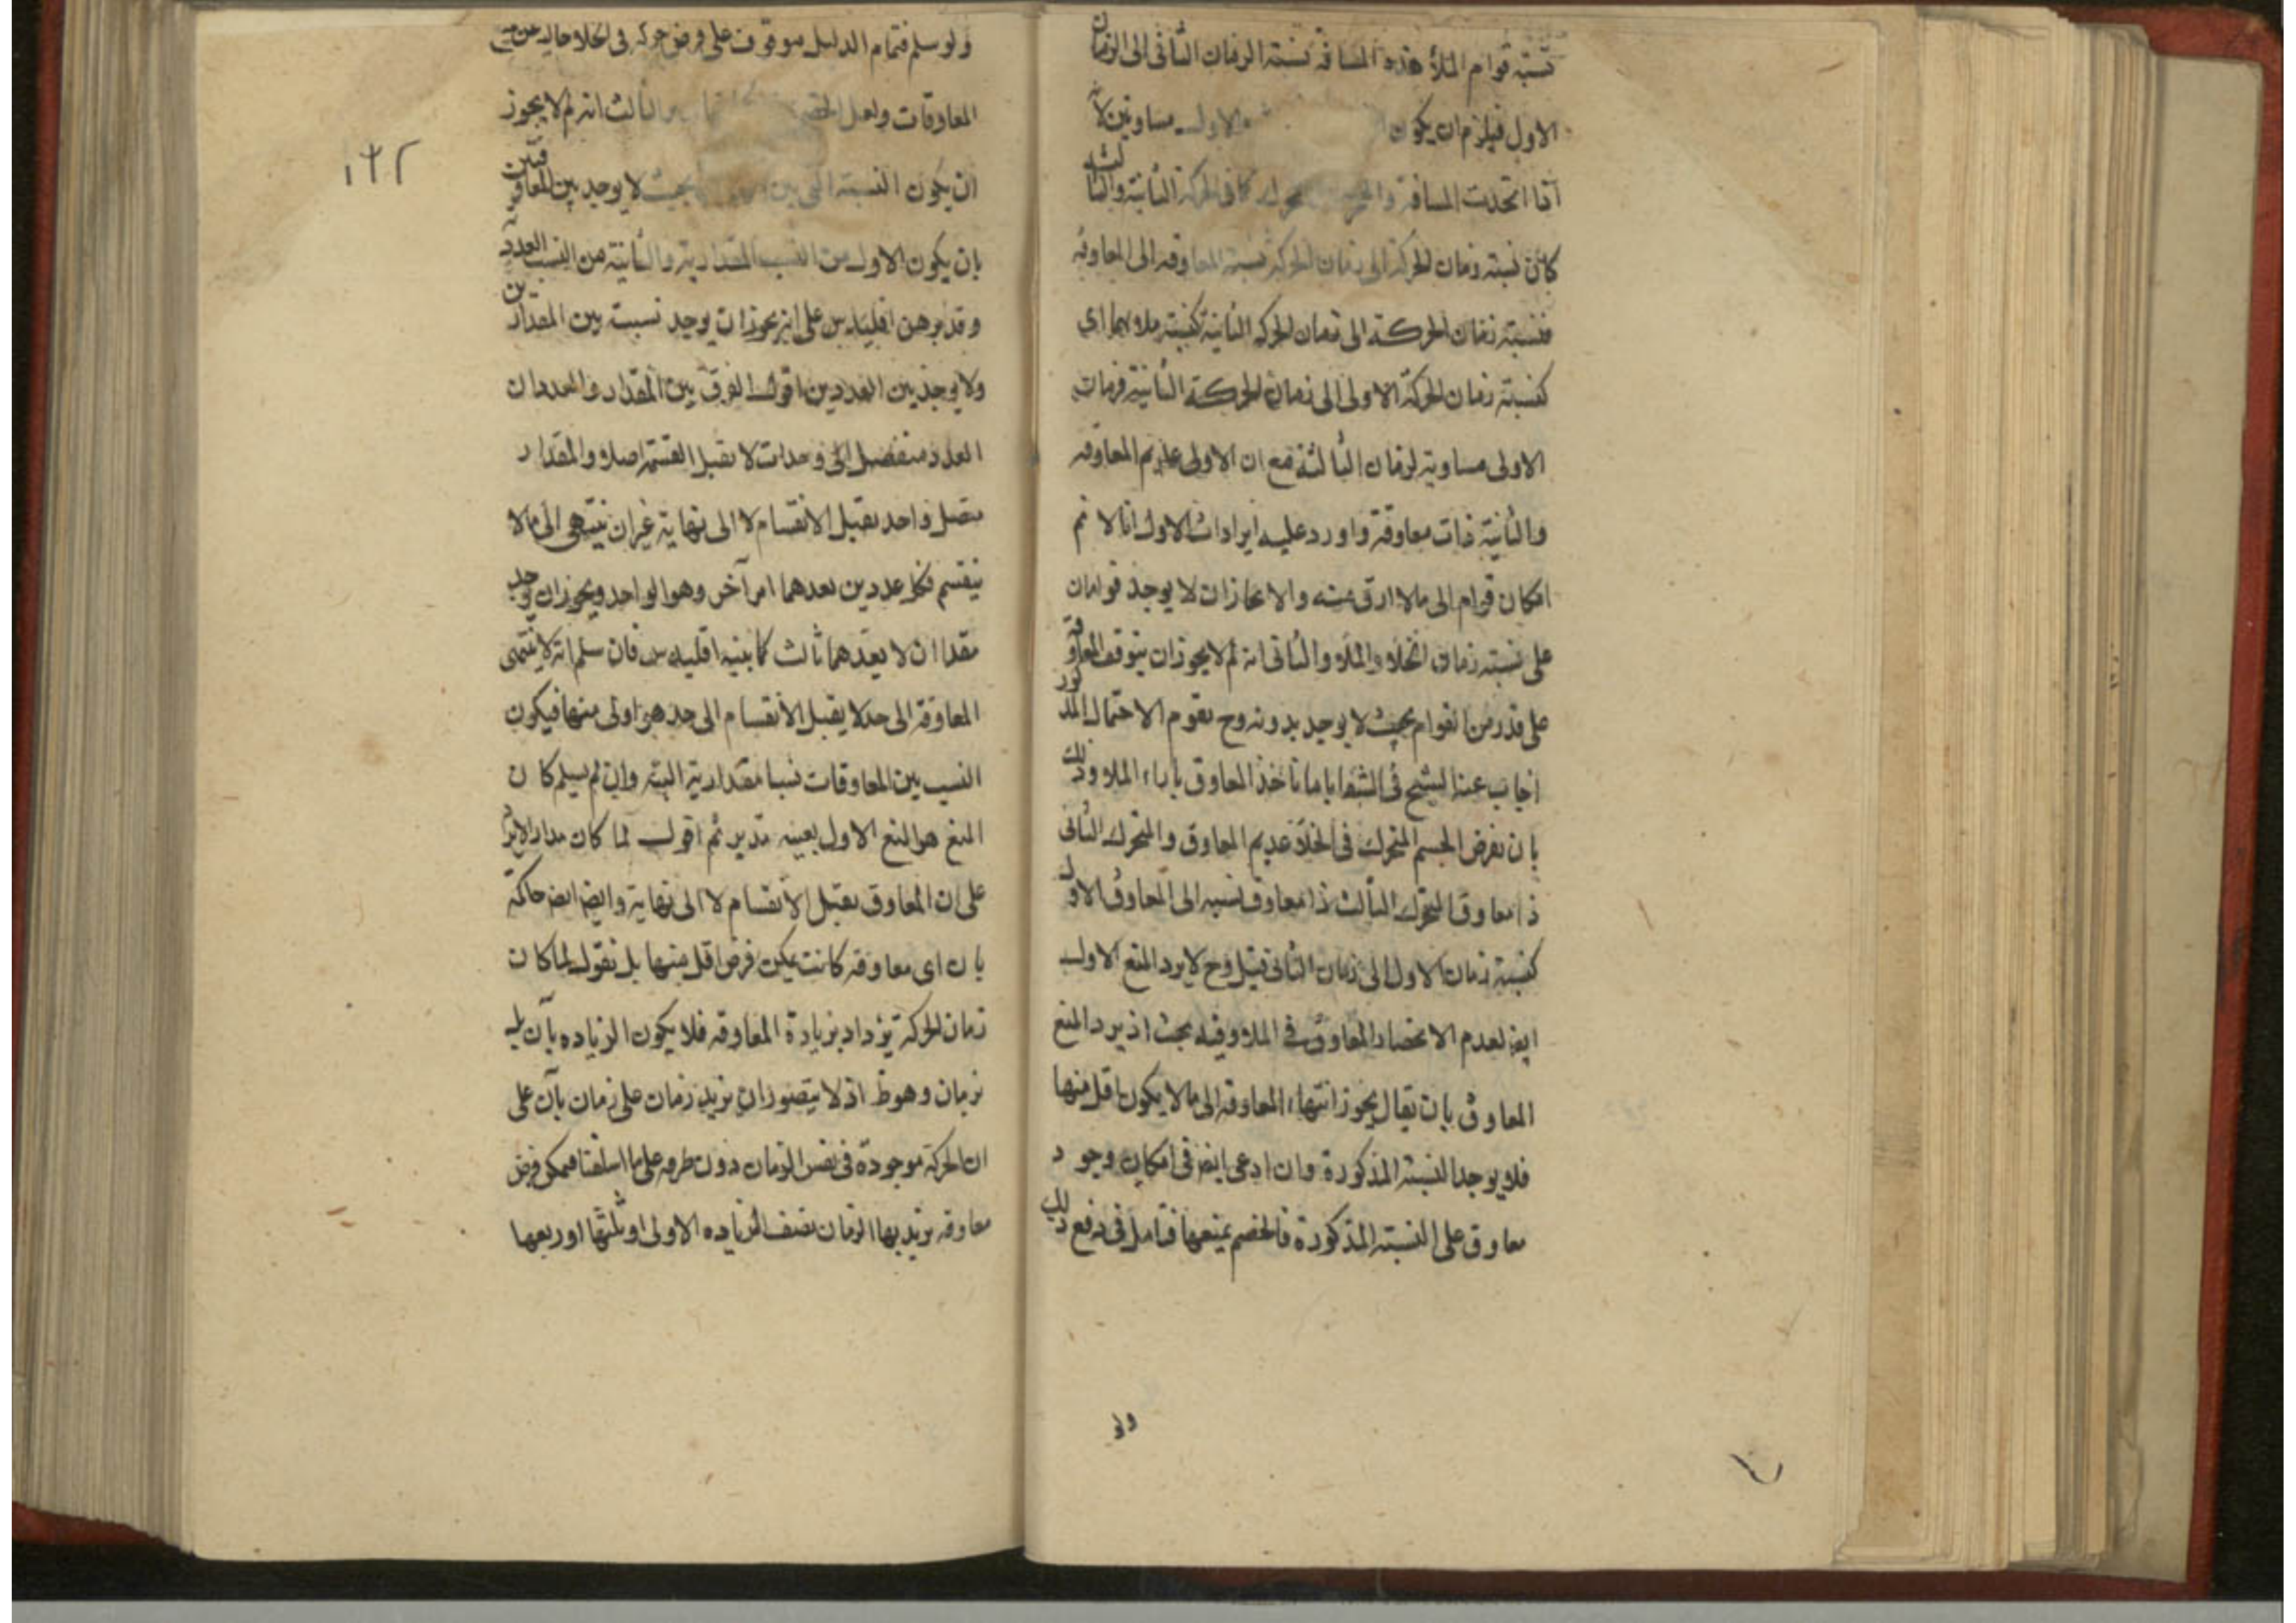 نسبته قوام الملأ هذه المسافة نسبة الزمان الثانى الى الزمان
الاول فيلزم ان يكون الاول مساويين لانه
اذا اتحدت المسافة كما فى الحركة الثانية والثالثه
كان نسبة زمان الحركة الى زمان الحركة نسبة المعاوقه الى المعاوقه
فنسبة زمان الحركة الى زمان الحركه الثانية كنسبة ملاءيهما اى
كنسبة زمان الحركة الاولى الى زمان الحركة الثانية فزمان
الاولى مساوية لزمان الثالثة مع ان الاولى عديم المعاوقه
والثانية ذات معاوقة واورد عليه ايرادات الاول انا لا نم
امكان قوام الى ملا ارق منه والا لجاز ان لا يوجد قوامان
على نسبة زمان الخلاء والملاء والثانى انه لم لا يجوز ان يتوقف المعاوقة
على قدر من القوام بحيث لا يوجد بدونه وح يقوم الاحتمال المذكور
اجاب عنه الشيخ فى الشفا بانا نأخذ المعاوق بازاء الملاء وذلك
بان نفرض الجسم المتحرك فى الخلاء عديم المعاوق والمتحرك الثانى
ذا معاوق المتحرك الثالث ذا معاوق نسبه الى المعاوق الاول
كنسبة زمان الاول الى زمان الثانى قيل وح لا يرد المنع الاول
ايض لعدم الانحصار المعاوق فى الملاء وفيه بحث اذ يرد المنع
المعاوق بان يقال يجوز انتهاء المعاوقه الى ما لا يكون اقل منها
فلا يوجد النسبة المذكورة وان ادعى ايض فى امكان وجود
معاوق على النسبة المذكورة فالخصم يمنعها فتامل فى دفع ذلك
ولو
ولو سلم فتمام الدليل موقوف على فرض حركه فى الخلاء خالية عن جميع
المعاوقات ولعل الخصم والثالث انه لم لا يجوز
ان يكون النسبة التى بين بحيث لا يوجد بين المعاوقتين
بان يكون الاول من النسب المقدارية والثانية من النسب العددية
وقد برهن اقليدس على انه يجوز ان يوجد نسبت بين المقدارين
ولا يوجد بين العددين اقول الفرق بين المقدار والعدد ان
العدد منفصل الى وحدات لا تقبل القسمة اصلا والمقدار
متصل واحد يقبل الانقسام لا الى نهاية غير ان ينتهى الى ما لا
ينقسم فكل عددين يعدهما امر آخر وهو الواحد ويجوز ان يوجد
مقداران لا يعدهما ثالث كما بينه اقليدس فان سلم انه لا ينتهى
المعاوقة الى حد لا يقبل الانقسام الى حد هى اولى منها فيكون
النسب بين المعاوقات نسبا مقدارية البتة وان لم يسلم كان
المنع هو المنع الاول بعينه تدبر ثم اقول لما كان مدار الايراد
على ان المعاوق يقبل الانقسام لا الى نهاية وايض ايض حاكمة
بان اى معاوقة كانت يمكن فرض اقل منها بل نقول لما كان
زمان الحركة يزداد بزيادة المعاوقه فلا يكون الزياده بآن بل
بزمان وهو ظ اذ لا يتصور ان يزيد زمان على زمان بآن على
ان الحركة موجودة فى نفس الزمان دون طرفه على ما اسلفنا فيمكن فرض
معاوقه يزيد بها الزمان نصف الزياده الاولى او ثلثها او ربعها